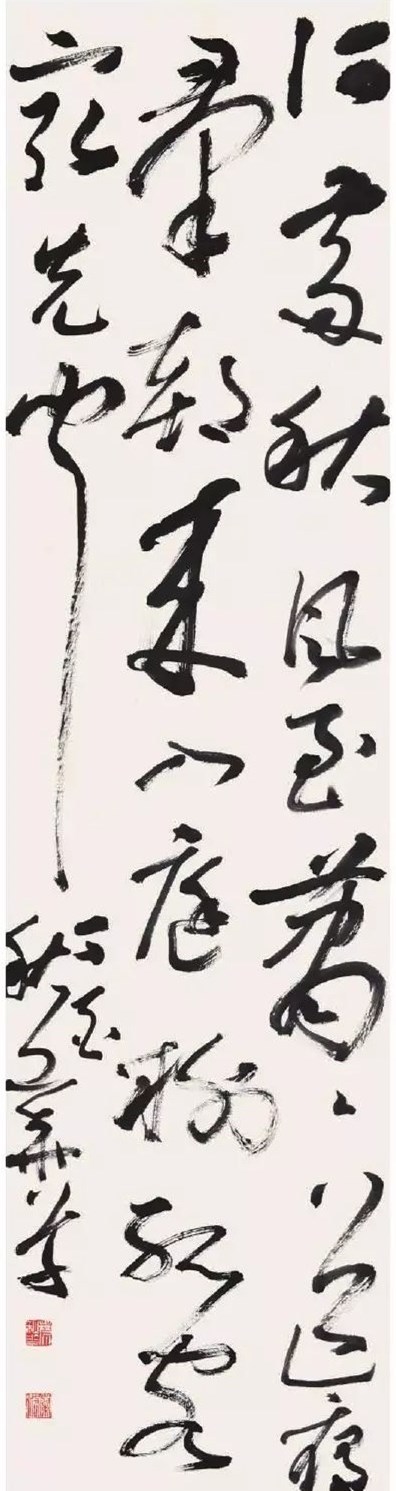 何處秋風至蕭蕭送鴈
羣朝來入庭樹孤客
最先聞